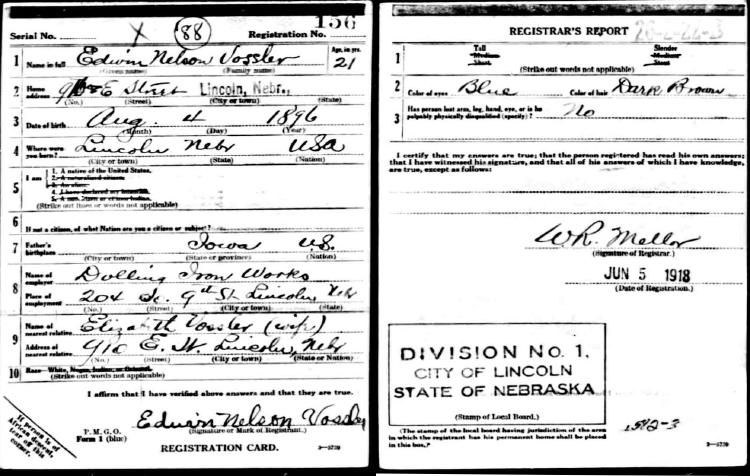 156
Serial No. X 88 Registration No.
1 Name in full Edwin Nelson Vossler Age, in yrs. 21
(Given name) (Family name)
2 Home address 910 E Street Lincoln, Nebr.,
(No.) (Street) (City or town) (State)
3 Date of birth Aug. 4 1896
(Month) (Day) (Year)
4 Where were you born? Lincoln Nebr USA
(City or town) (State) (Nation)
5 I am 1. A native of the United States.
2. A naturalized citizen.
3. An alien.
4. I have declared my intention.
5.
(Strike out lines or words not applicable)
6 If not a citizen, of what Nation are you a citizen or subject?
7 Father's birthplace Iowa U.S.
(City or town) (State or province) (Nation)
8 Name of employer Dolling Iron Works
Place of employment 204 So. 9th St. Lincoln, Nebr
(No.) (Street) (City or town) (State)
9 Name of nearest relative Elizabeth Vossler (wife)
Address of nearest relative 910 E. St. Lincoln, Nebr
(No.) (Street) (City or town) (State or Nation)
10 Race—White, Negro, Indian, or Oriental.
(Strike out words not applicable)
I affirm that I have verified above answers and that they are true.
Edwin Nelson Vossler
P.M.G.O. (Signature or Mark of Registrant.)
Form 1 (blue)
REGISTRATION CARD. 3—5729
If person is of African descent, tear off this corner.
REGISTRAR'S REPORT
1 Tall Slender
Medium Medium
Short Stout
(Strike out words not applicable)
2 Color of eyes Blue Color of hair Dark Brown
3 Has person lost arm, leg, hand, eye, or is he palpably physically disqualified (specify)? No
I certify that my answers are true; that the person registered has read his own answers;
that I have witnessed his signature, and that all of his answers of which I have knowledge,
are true, except as follows:
W.R. Mellor
(Signature of Registrar.)
JUN 5 1918
(Date of Registration.)
DIVISION No. 1,
CITY OF LINCOLN
STATE OF NEBRASKA
(Stamp of Local Board.)
1542-3
(The stamp of the local board having jurisdiction of the area
in which the registrant has his permanent home shall be placed
in this box.) 3—5729